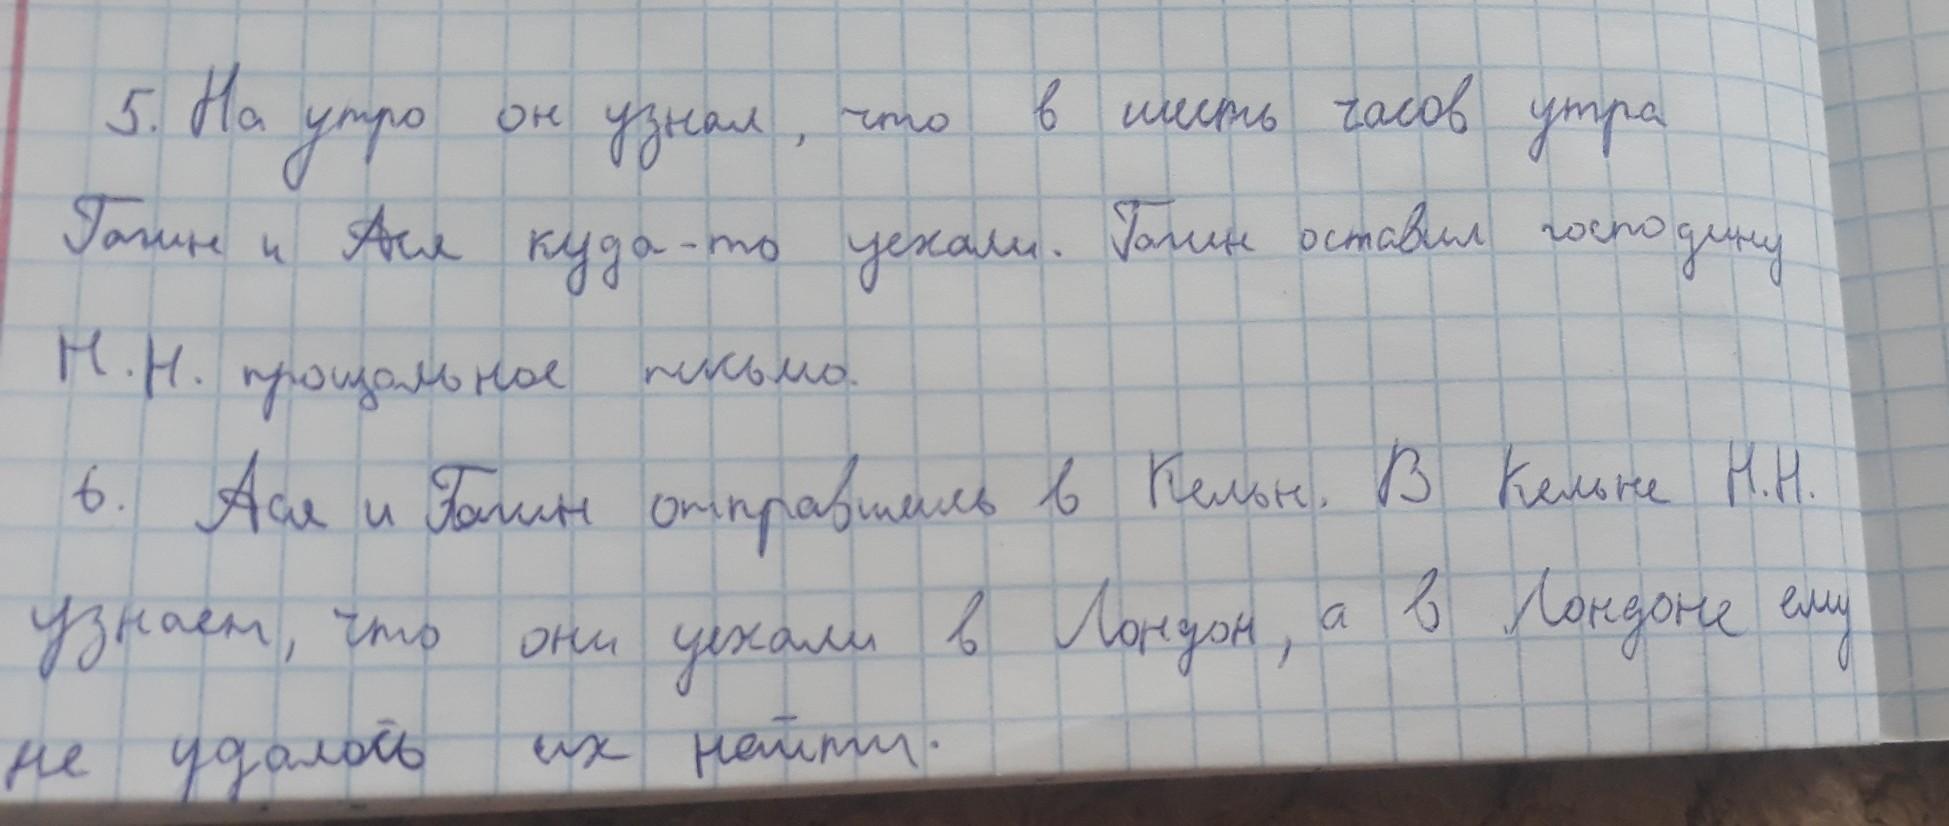 5. На утро он узнал, что в шесть часов утра
Гагин и Ася куда-то уехали. Гагин оставил господину
Н.Н. прощальное письмо.
6. Ася и Гагин отправились в Кельн. В Кельне Н.Н.
узнает, что они уехали в Лондон, а в Лондоне ему
не удалось их найти.